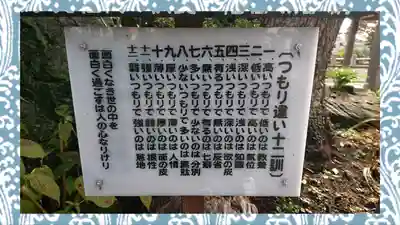 (つもり違い十二訓)
一 高いつもりで 低いのは 教養
二 低いつもりで 高いのは 気位
三 深いつもりで 浅いのは 知識
四 浅いつもりで 深いのは 欲の皮
五 有るつもりで 無いのは 反省
六 無いつもりで 有るのは 七癖
七 多いつもりで 少ないのは 分別
八 少ないつもりで 多いのは 無駄
九 厚いつもりで 薄いのは 人情
十 薄いつもりで 厚いのは 面の皮
十一 強いつもりで 弱いのは 根性
十二 弱いつもりで 強いのは 意地
面白くなき世の中を
面白く過ごすは人の心なりけり